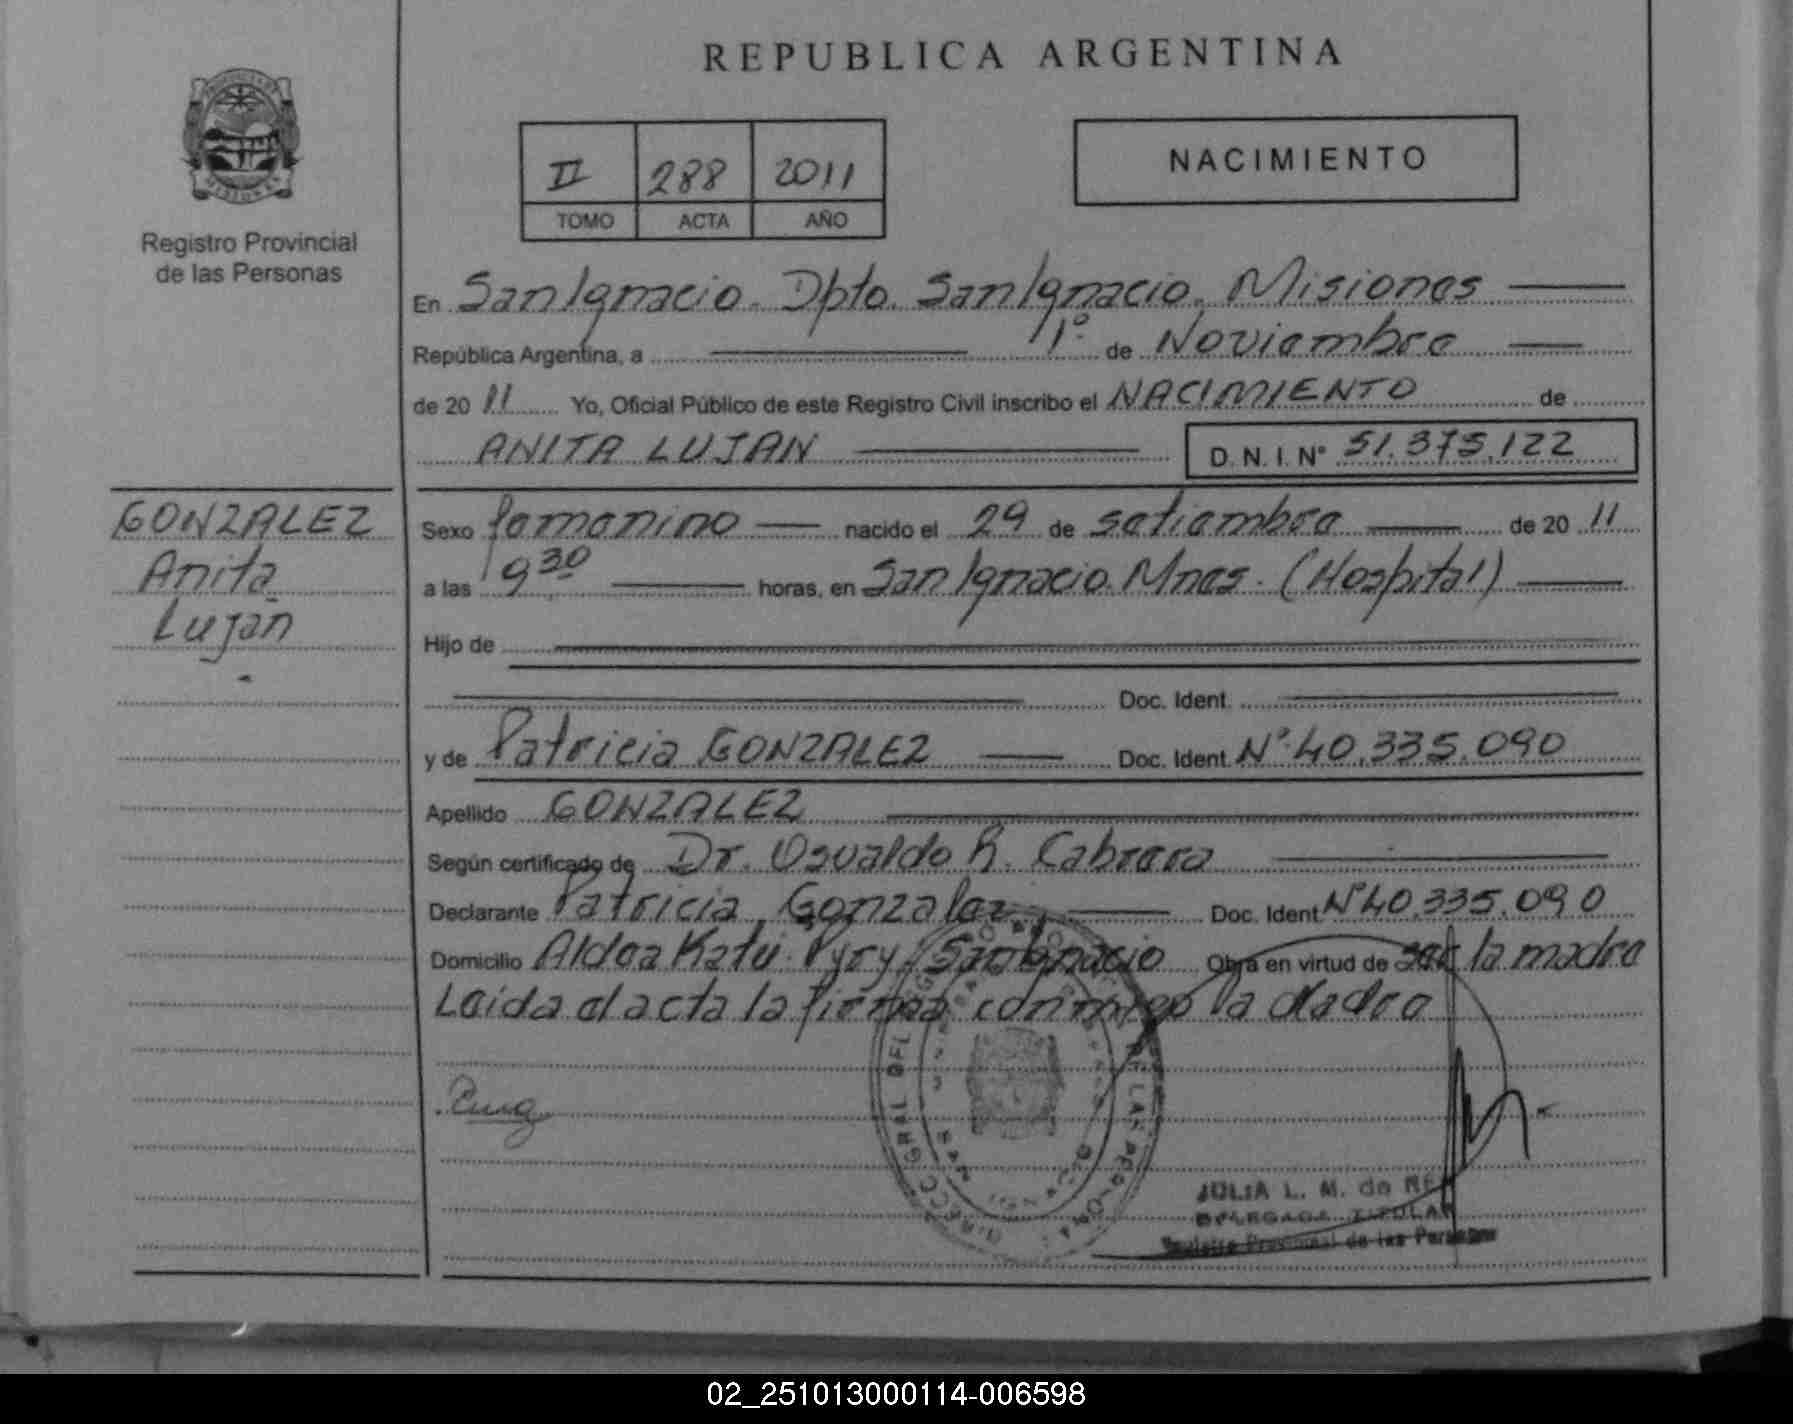 REPUBLICA ARGENTINA
II 288 2011
TOMO ACTA AÑO
NACIMIENTO
Registro Provincial
de las Personas
En San Ignacio. Dpto. San Ignacio. Misiones
República Argentina, a 1º de Noviembre
de 20 11 Yo, Oficial Público de este Registro Civil inscribo el NACIMIENTO de
ANITA LUJAN D.N.I. Nº 51.375.122
GONZALEZ
Anita
Luján
Sexo femenino nacido el 29 de setiembre de 20 11
a las 9 30 horas, en San Ignacio. Mnes. (Hospital)
Hijo de
Doc. Ident.
y de Patricia GONZALEZ Doc. Ident. Nº 40.335.090
Apellido GONZALEZ
Según certificado de Dr. Osvaldo R. Cabrera
Declarante Patricia Gonzalez Doc. Ident. Nº 40.335.090
Domicilio Aldea Katú Pyry San Ignacio Obra en virtud de ser la madre
Leida el acta la firma conmigo la Madre
JULIA L. M. de
DELEGADA TITULAR
Registro Provincial de las Personas
02_251013000114-006598